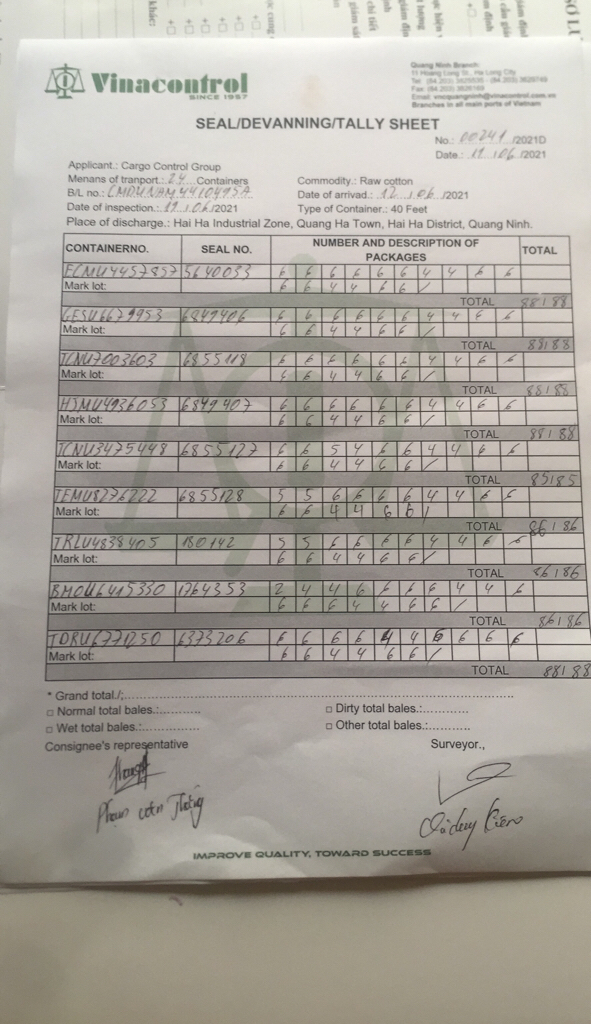 Vinacontrol
SINCE 1957
Quang Ninh Branch:
11 Hoang Long St., Ha Long City
Branches in all main ports of Vietnam
SEAL/DEVANNING/TALLY SHEET
No.: 00241 /2021D
Date.: 11 /06 /2021
Applicant.: Cargo Control Group
Menans of tranport.: 24 Containers
Commodity.: Raw cotton
B/L no.: CMDUNAM4410495A
Date of arrival.: 12 /06 /2021
Date of inspection.: 11 /06/2021
Type of Container.: 40 Feet
Place of discharge.: Hai Ha Industrial Zone, Quang Ha Town, Hai Ha District, Quang Ninh.
CONTAINERNO. SEAL NO. NUMBER AND DESCRIPTION OF PACKAGES TOTAL
ECMU4457857 5640033 6 6 6 6 6 6 4 4 6 6
Mark lot: 6 6 4 4 6 6 /
TOTAL 88/88
GESU6679953 6849406 6 6 6 6 6 6 4 4 6 6
Mark lot: 6 6 4 4 6 6 /
TOTAL 88/88
TCNU7003603 6855118 6 6 6 6 6 6 4 4 6 6
Mark lot: 6 6 4 4 6 6 /
TOTAL 88/88
HJMU4936053 6849407 6 6 6 6 6 6 4 4 6 6
Mark lot: 6 6 4 4 6 6 /
TOTAL 88/88
TCNU3475448 6855127 6 6 5 4 6 6 4 4 6 6
Mark lot: 6 6 4 4 6 6 /
TOTAL 85/85
TEMU8276222 6855128 5 5 6 6 6 6 4 4 6 6
Mark lot: 6 6 4 4 6 6 /
TOTAL 86/86
TRLU4838405 180142 5 5 6 6 6 6 4 4 6 6
Mark lot: 6 6 4 4 6 6 /
TOTAL 86/86
BMOU6415330 1764353 2 4 4 6 6 6 6 4 4 6
Mark lot: 6 6 6 4 4 6 6 /
TOTAL 86/86
TDRU6771250 6373206 6 6 6 6 4 4 6 6 6 6
Mark lot: 6 6 4 4 6 6 /
TOTAL 88/88
* Grand total./:
□ Normal total bales.:
□ Dirty total bales.:
□ Wet total bales.:
□ Other total bales.:
Consignee's representative
Surveyor.,
IMPROVE QUALITY, TOWARD SUCCESS